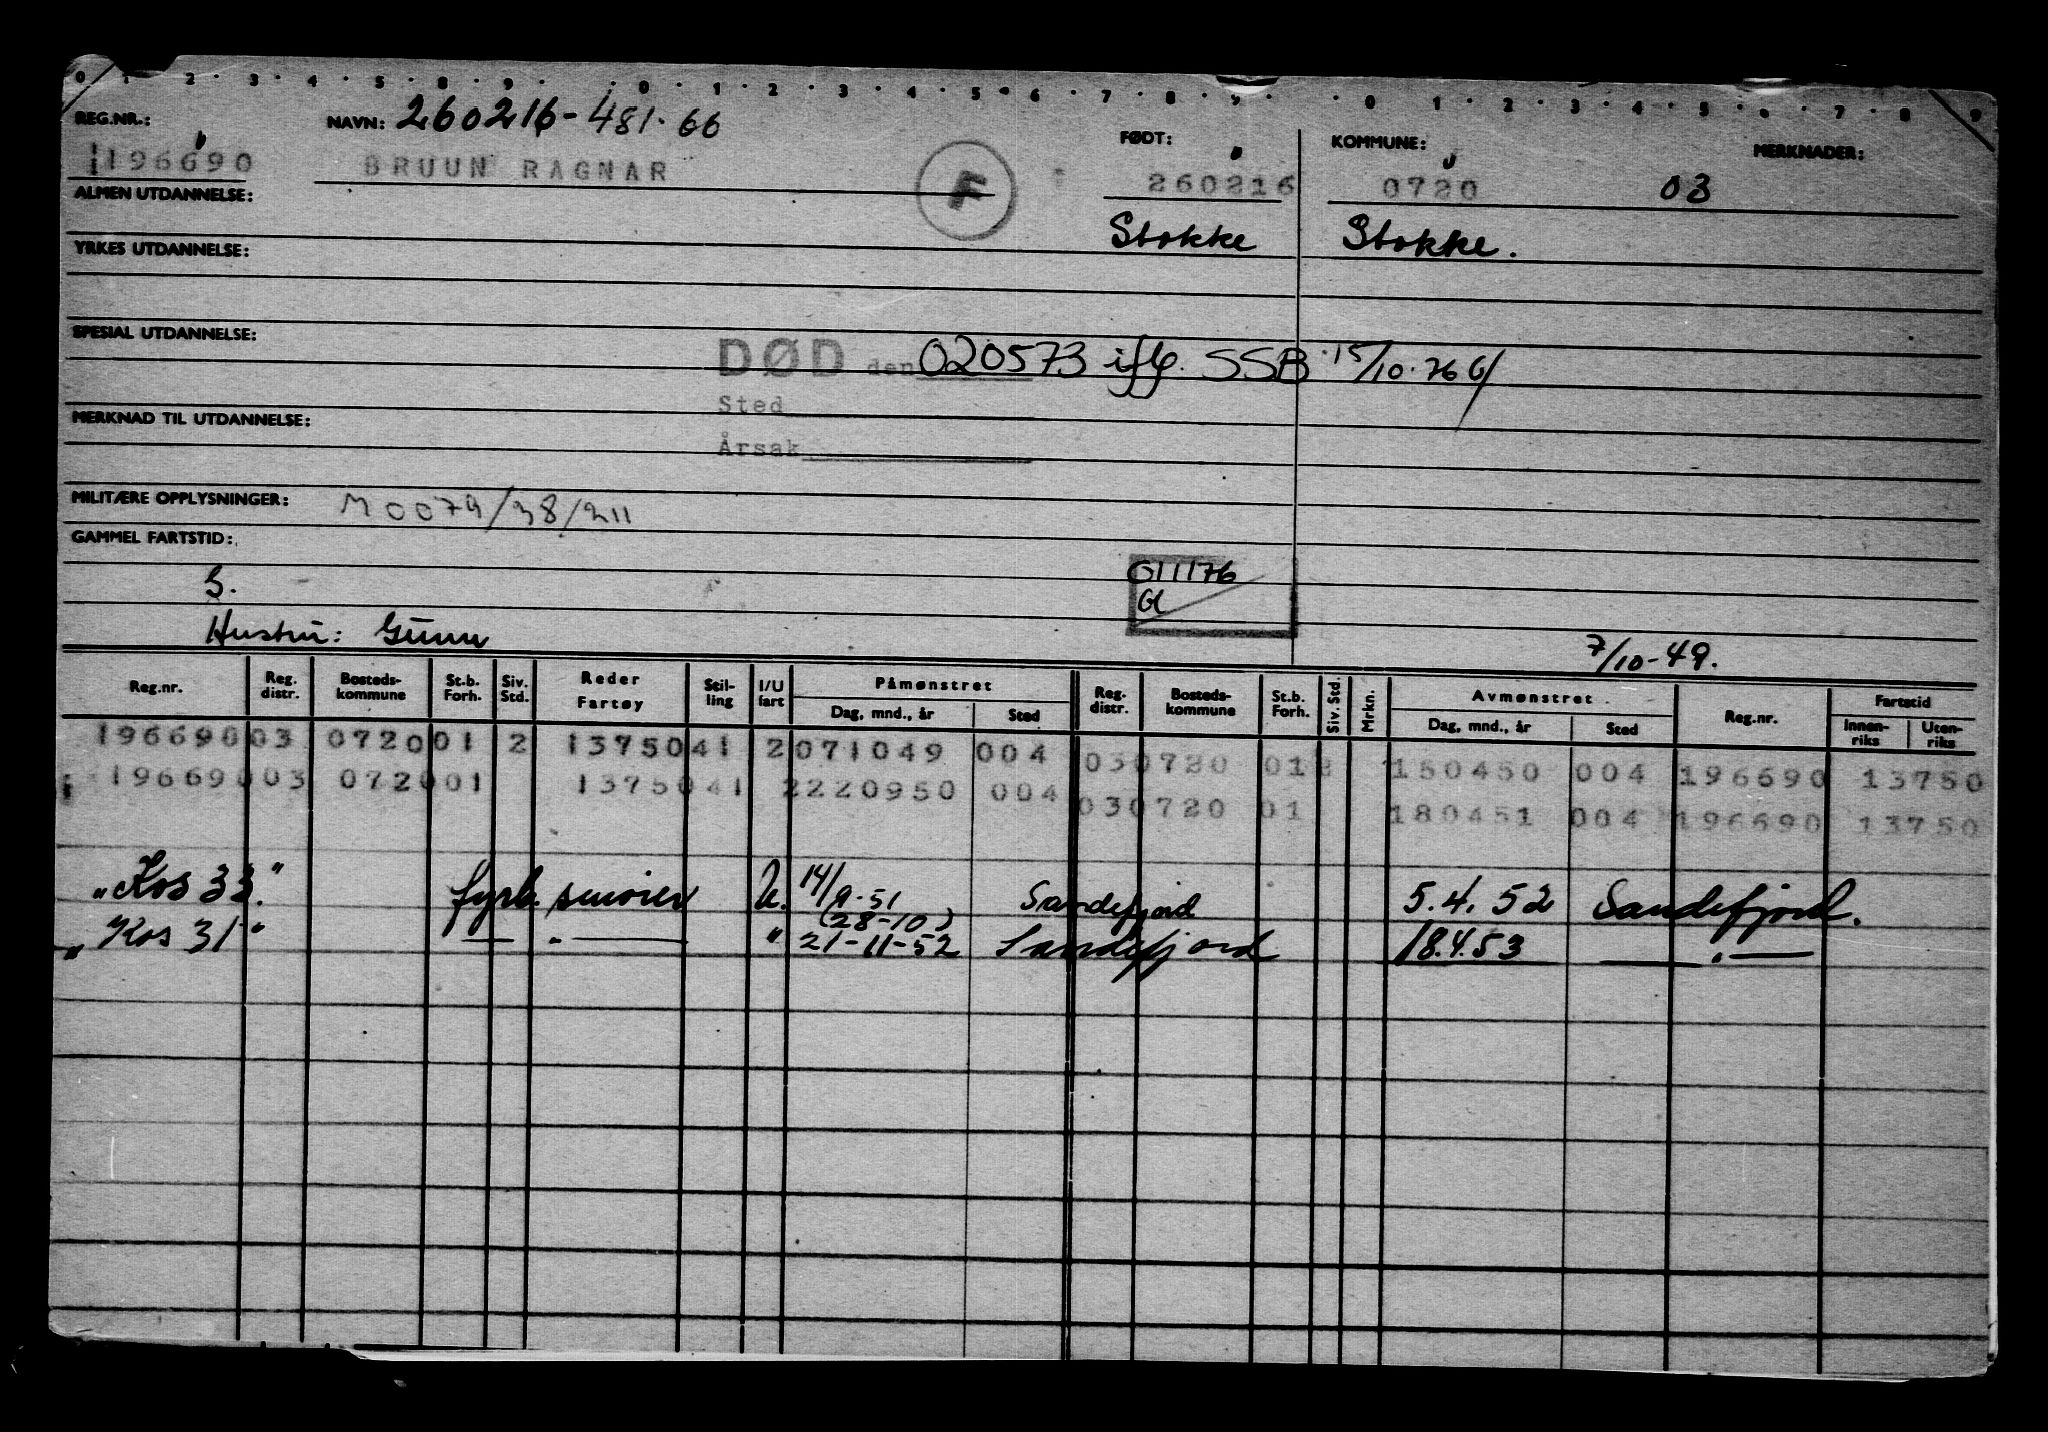 0 1 2 3 4 5 8 9 0 1 2 3 4 5 6 7 8 9 0 1 2 3 4 5 6 7 8 9
REG.NR.: NAVN: 260216-481.66 FØDT: KOMMUNE: MERKNADER:
196690 BRUUN RAGNAR F 260216 0720 03
ALMEN UTDANNELSE: Stokke Stokke.
YRKES UTDANNELSE:
SPESIAL UTDANNELSE:
DØD den 020573 ifLg. SSB 15/10.76 G/
Sted
MERKNAD TIL UTDANNELSE:
Årsak
MILITÆRE OPPLYSNINGER: M0079/38/211
GAMMEL FARTSTID:
S. 011176
Gl
Hustru: Gunn 7/10-49.
Reg.nr. Reg. distr. Bosteds-kommune St.b. Forh. Siv. Std. Reder Fartøy Stil-ling I/U fart Påmønstret Reg. distr. Bosteds-kommune St.b. Forh. Siv. Std. Mrkn. Avmønstret Reg.nr. Fartstid
Dag, mnd., år Sted Dag, mnd., år Sted Innen-riks Uten-riks
196690 03 0720 01 2 13750 41 2 071049 004 03 0720 01 2 150450 004 196690 13750
196690 03 0720 01 13750 41 2 220950 004 03 0720 01 180451 004 196690 13750
"Kos 33." fyrb. smører U. 14/9-51 Sandefjord 5.4.52 Sandefjord.
(28-10)
"Kos 31" — . — " 21-11-52 Sandefjord 18.4.53 — . —